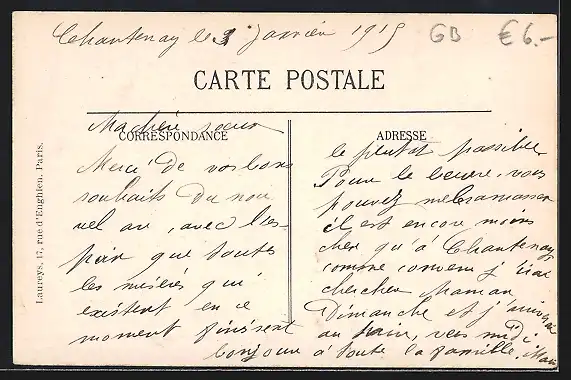 Chantenay le 3 Janvier 1915
GB
€ 6.-
CARTE POSTALE
CORRESPONDANCE
ADRESSE
Laureys, 17, rue d'Enghien, Paris.
Ma chère soeur
Merci de vos bons
souhaits du nou
vel an, avec l'es-
poir que toutes
les misères qui
existent en ce
moment finissent
le plutot possible
Pour le beurre, vous
pouvez m'en ramasser
il est encore moins
cher qu'à Chantenay
comme convenu j'irai
chercher Maman
Dimanche et j'arriverai
au train, vers midi
bonjour à toute la famille,